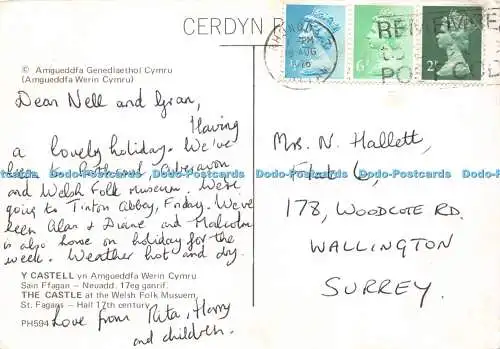 CERDYN P
© Amgueddfa Genedlaethol Cymru
(Amgueddfa Werin Cymru)
Dear Nell and Gran,
Having
a lovely holiday. We've
been to Porthcawl, Aberavon
and Welsh Folk museum. We're
going to Tinton Abbey, Friday. We've
seen Alan & Diane and Malcolm
is also home on holiday for the
week. Weather hot and dry.
Y CASTELL yn Amgueddfa Werin Cymru
Sain Ffagan – Neuadd, 17eg ganrif.
THE CASTLE at the Welsh Folk Musuem,
St. Fagans – Hall 17th century.
PH594
Love from Rita, Harry
and children.
PM
AUG
REMEMBER
to
PO CO
6P
2P
Mrs. N. Hallett,
Flat 6,
178, WOODCOTE RD.
WALLINGTON
SURREY.
Dodo-Postcards Dodo-Postcards Dodo-Postcards Dodo-Postcards